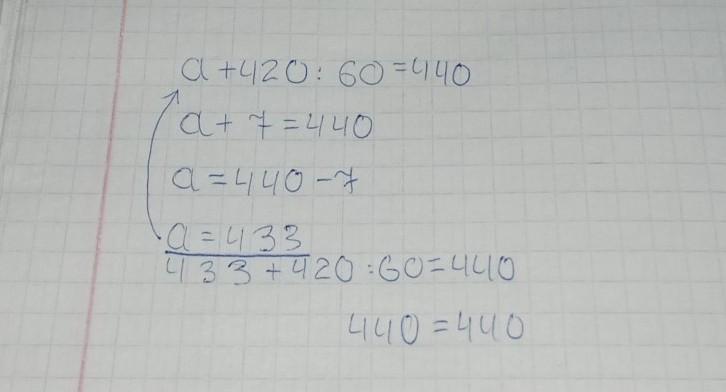 a + 420 : 60 = 440
a + 7 = 440
a = 440 - 7
a = 433
433 + 420 : 60 = 440
440 = 440